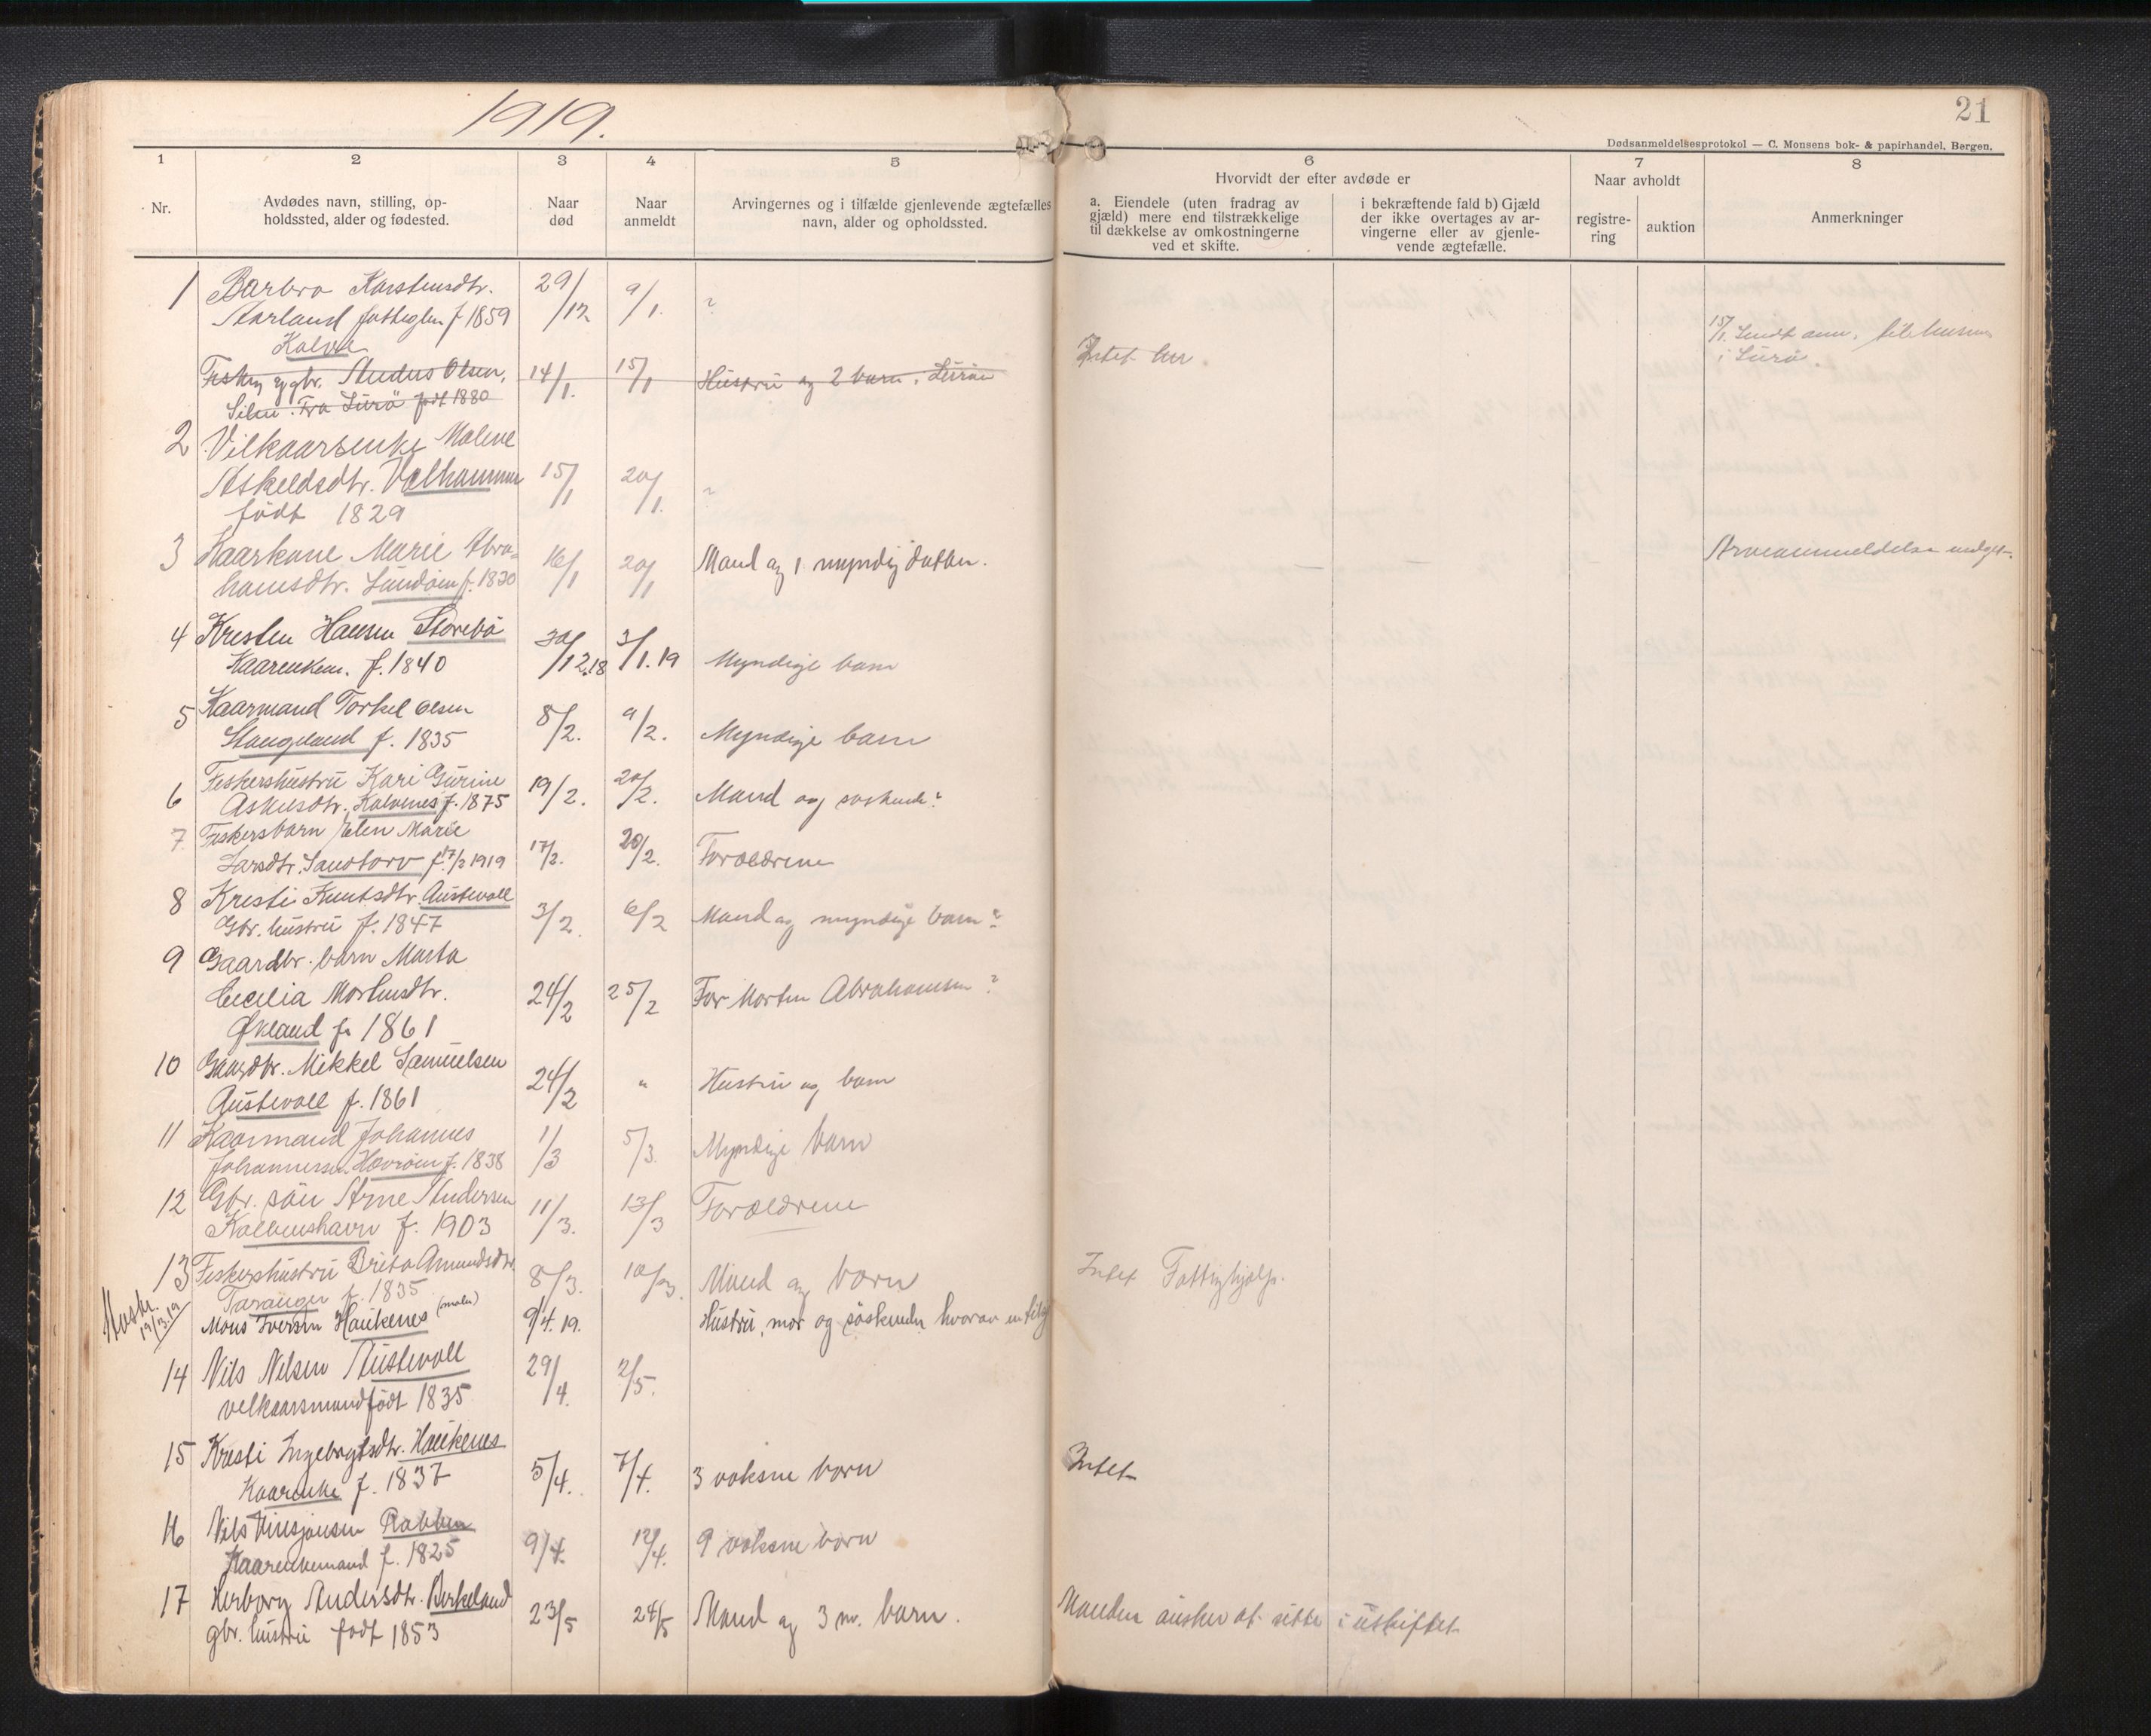 1919.
21
Dødsanmeldelsesprotokol — C. Monsens bok- & papirhandel, Bergen.
1
2
3
4
5
6
7
8
Nr.
Avdødes navn, stilling, op-
holdssted, alder og fødested.
Naar
død
Naar
anmeldt
Arvingernes og i tilfælde gjenlevende ægtefælles
navn, alder og opholdssted.
Hvorvidt der efter avdøde er
a. Eiendele (uten fradrag av
gjæld) mere end tilstrækkelige
til dækkelse av omkostningerne
ved et skifte.
i bekræftende fald b) Gjæld
der ikke overtages av ar-
vingerne eller av gjenle-
vende ægtefælle.
Naar avholdt
registre-
ring
auktion
Anmerkninger
1 Barbro Karstensdtr. 29/12 9/1. ?
f 1859
Kalve
Anders Olsen, 14/1. 15/1 Hustru og 2 barn
Fra født 1880
Intet her.
15/1
i
2 Vilkaarsenke Malene
Askeldsdtr. 15/1 20/1. ?
født 1829
3 Kaarkone Marie Abra-
hamsdtr. f. 1830 16/1 20/1 Mand og 1 myndig datter.
Arveanmeldelse
4 Kresten Hansen Storebö 30/12.18 3/1.19 Myndige barn
f. 1840
5 Kaarmand Torkel Olsen
Stangeland f. 1835 8/2. 9/2. Myndige barn
6 Fiskershustru Kari Gurine
Kalvenes f. 1875 19/2. 20/2. Mand og søskende?
7 Fiskersbarn Elen Marie
Larsdtr. Sandtorv f. 17/2 1919 17/2. 20/2. Forældrene
8 Kresti Knutsdtr. Austevoll
Gbr. hustru f. 1847 3/2. 6/2 Mand og myndige barn?
9 Gaardbr. barn Marta
Cecilia Mortensdtr. 24/2 25/2 Far Morten Abrahamsen?
Økland f. 1861
10 Gaardbr. Mikkel Samuelsen
Austevoll f. 1861 24/2 " Hustru og barn
11 Kaarmand Johannes
Johannessen f. 1838 1/3 5/3. Myndige barn
12 Gbr. sön Arne Andersen
Kolbenshavn f. 1903 11/3. 13/3 Forældrene
13 Fiskershustru Brita Amundsdtr.
Taranger f. 1835 8/3. 10/3. Mand og barn
Intet Fattighjelp.
19/13.19
Mons Iversen Haukenes (maler) 9/4.19. Hustru, mor og söskender hvorav en
14 Nils Nilsen Austevoll 29/4. 2/5.
født 1835
15 Kresti Haukenes
Kaarenke f. 1837 5/4. 7/4. 3 voksne born
Intet
16 Nils Rabben
Kaarenkemand f. 1825 9/4. 12/4. 9 voksne born
17 Herborg Andersdtr. Birkeland
gbr. hustru født 1853 23/5 24/5 Mand og 3 barn.
Manden önsker at sitte i uskiftet